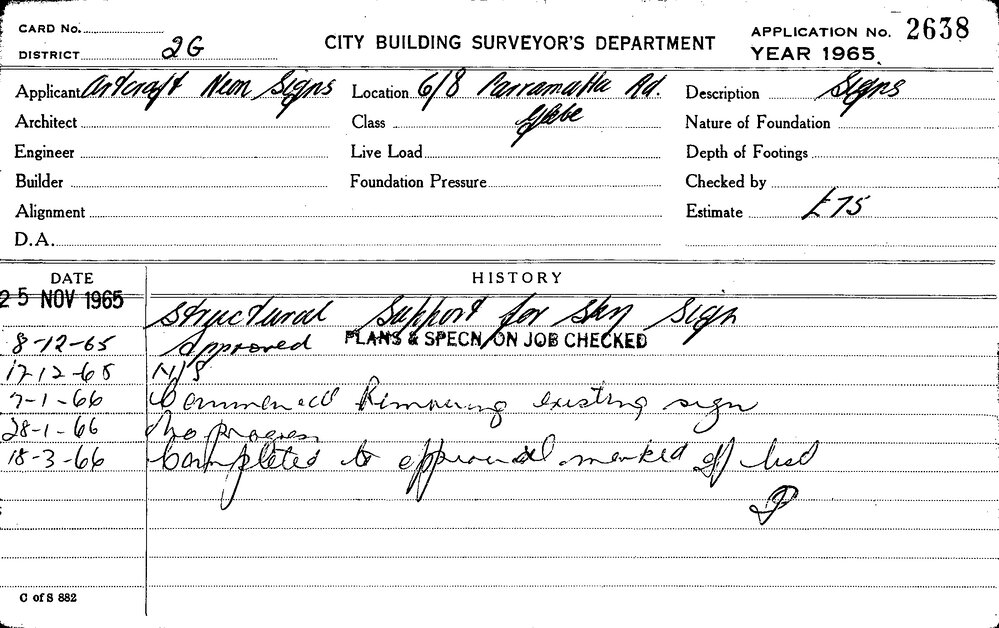 CARD No.
DISTRICT 2G
CITY BUILDING SURVEYOR'S DEPARTMENT
APPLICATION No. 2638
YEAR 1965.
Applicant Artcraft Neon Signs
Location 6/8 Parramatta Rd.
Description Signs
Architect
Class Glebe
Nature of Foundation
Engineer
Live Load
Depth of Footings
Builder
Foundation Pressure
Checked by
Alignment
Estimate £75
D.A.
DATE
HISTORY
25 NOV 1965 Structural Support for Sky Sign
8-12-65 Approved PLANS & SPECN. ON JOB CHECKED
17-12-65 N/S
7-1-66 Commenced Removing existing sign
28-1-66 No progress
18-3-66 Completed to approval marked off
C of S 882